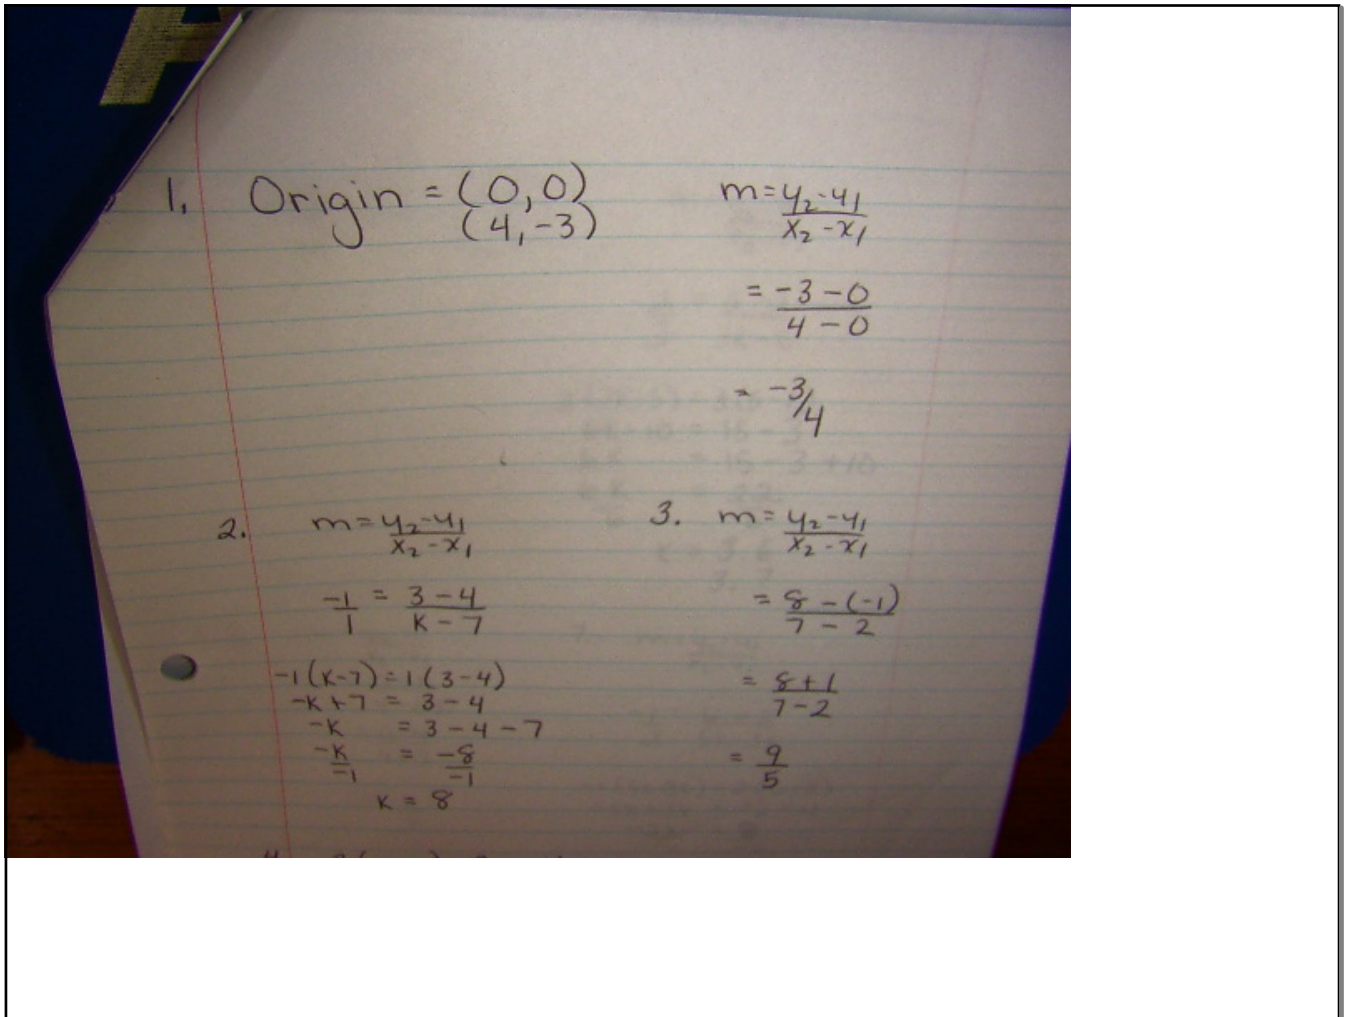 1. Origin = (0,0)
(4,-3)
m = y₂-y₁
x₂-x₁
= -3-0
4-0
= -3/4
2. m = y₂-y₁
x₂-x₁
-1 = 3-4
1 K-7
-1(K-7) = 1(3-4)
-K+7 = 3-4
-K = 3-4-7
-K = -8
-1 -1
K = 8
3. m = y₂-y₁
x₂-x₁
= 8-(-1)
7-2
= 8+1
7-2
= 9
5